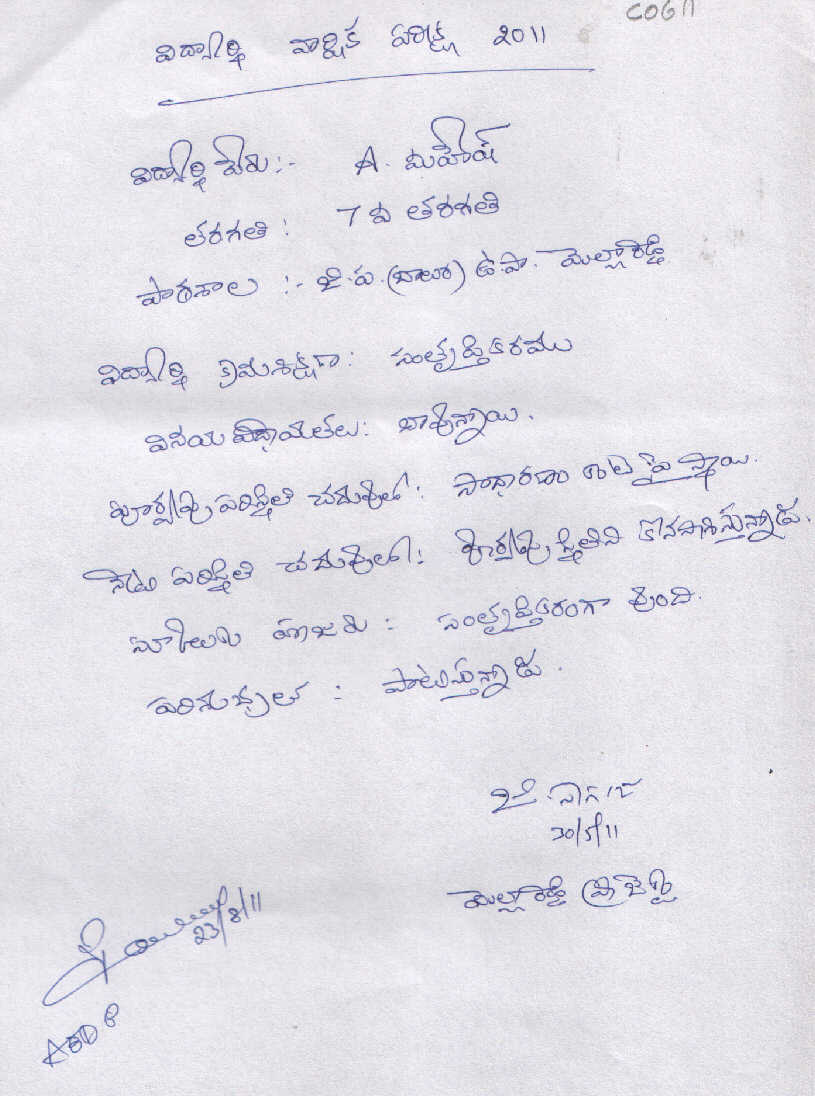 CO611
విద్యార్థి వార్షిక పరీక్ష 2011
విద్యార్థి పేరు :- A. మహేష్
తరగతి : 7 వ తరగతి
పాఠశాల :- జి.ప.(బాలుర) ఉ.పా. మెల్లారెడ్డి
విద్యార్థి క్రమశిక్షణ : సంతృప్తికరము
వినయ విధేయతలు : బాపున్నాయి.
పూర్వపు పరిస్థితి చదువులో : సాధారణం
నేటి పరిస్థితి చదువులో : పూర్వపు స్థితిని కొనసాగిస్తున్నాడు.
హాజరు : సంతృప్తికరంగా వుంది.
పరిశుభ్రత : పాటిస్తున్నాడు.
30/5/11
మెల్లారెడ్డి ప్రాజెక్ట్
23/8/11